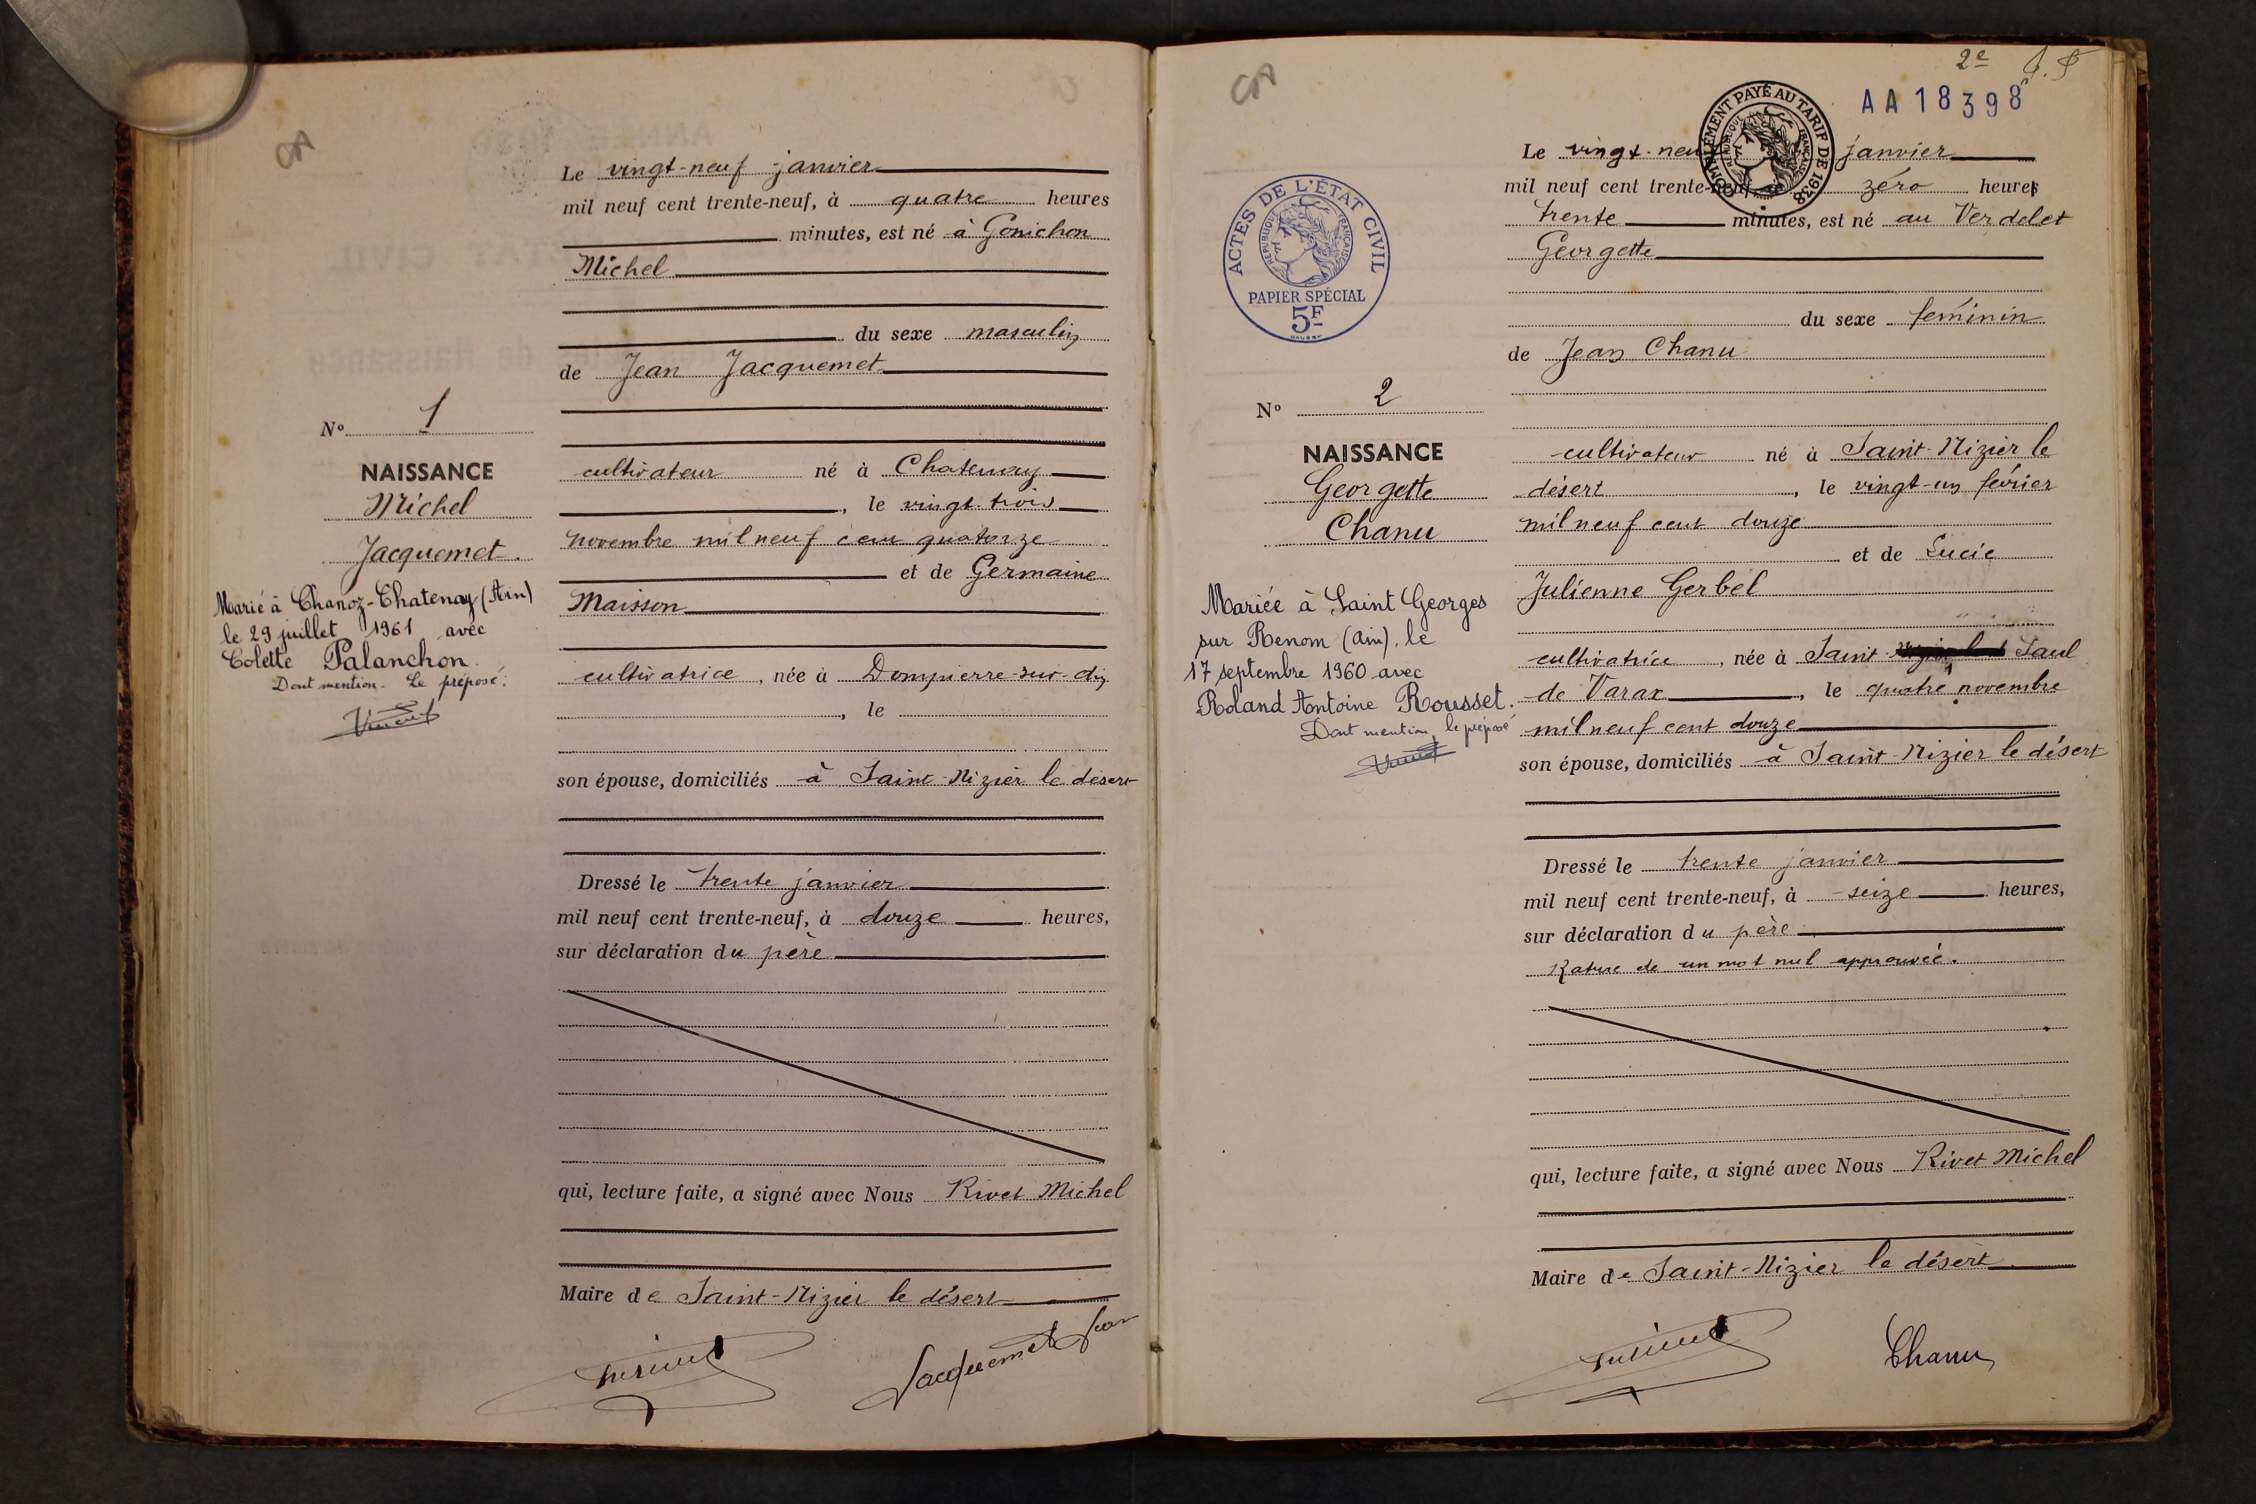 Le vingt-neuf janvier
mil neuf cent trente-neuf, à quatre heures
minutes, est né à Gonichon
Michel
du sexe masculin
de Jean Jacquemet
No 1
NAISSANCE
Michel
Jacquemet.
Marié à Chanoz-Chatenay (Ain)
le 29 juillet 1961 avec
Colette Palanchon.
Dont mention. Le préposé:
cultivateur né à Chatenay
, le vingt trois
novembre mil neuf cent quatorze
et de Germaine
Maisson
cultivatrice, née à Dompierre-sur-
, le
son épouse, domiciliés à Saint-Nizier le désert
Dressé le trente janvier
mil neuf cent trente-neuf, à douze heures,
sur déclaration du père
qui, lecture faite, a signé avec Nous Rivet Michel
Maire de Saint-Nizier le désert
Jacquemet Jean
2e
AA18398
COMPLÉMENT PAYÉ AU TARIF DE 1938
RÉPUBLIQUE FRANÇAISE
Le vingt-neuf janvier
mil neuf cent trente-neuf, zéro heures
trente minutes, est né au Verdelet
Georgette
du sexe féminin
de Jean Chanu
ACTES DE L'ÉTAT CIVIL
RÉPUBLIQUE FRANÇAISE
PAPIER SPÉCIAL
5F
No 2
NAISSANCE
Georgette
Chanu
Mariée à Saint Georges
sur Renom (Ain), le
17 septembre 1960 avec
Roland Antoine Rousset.
Dont mention, le préposé
cultivateur né à Saint-Nizier le
désert, le vingt-un février
mil neuf cent douze
et de Lucie
Julienne Gerbel
cultivatrice, née à Saint Paul
de Varax, le quatre novembre
mil neuf cent douze
son épouse, domiciliés à Saint-Nizier le désert
Dressé le trente janvier
mil neuf cent trente-neuf, à seize heures,
sur déclaration du père
Rature de un mot nul approuvée.
qui, lecture faite, a signé avec Nous Rivet Michel
Maire de Saint-Nizier le désert
Chanu